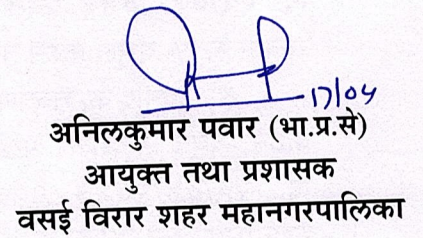 17/04
अनिलकुमार पवार (भा.प्र.से)
आयुक्त तथा प्रशासक
वसई विरार शहर महानगरपालिका